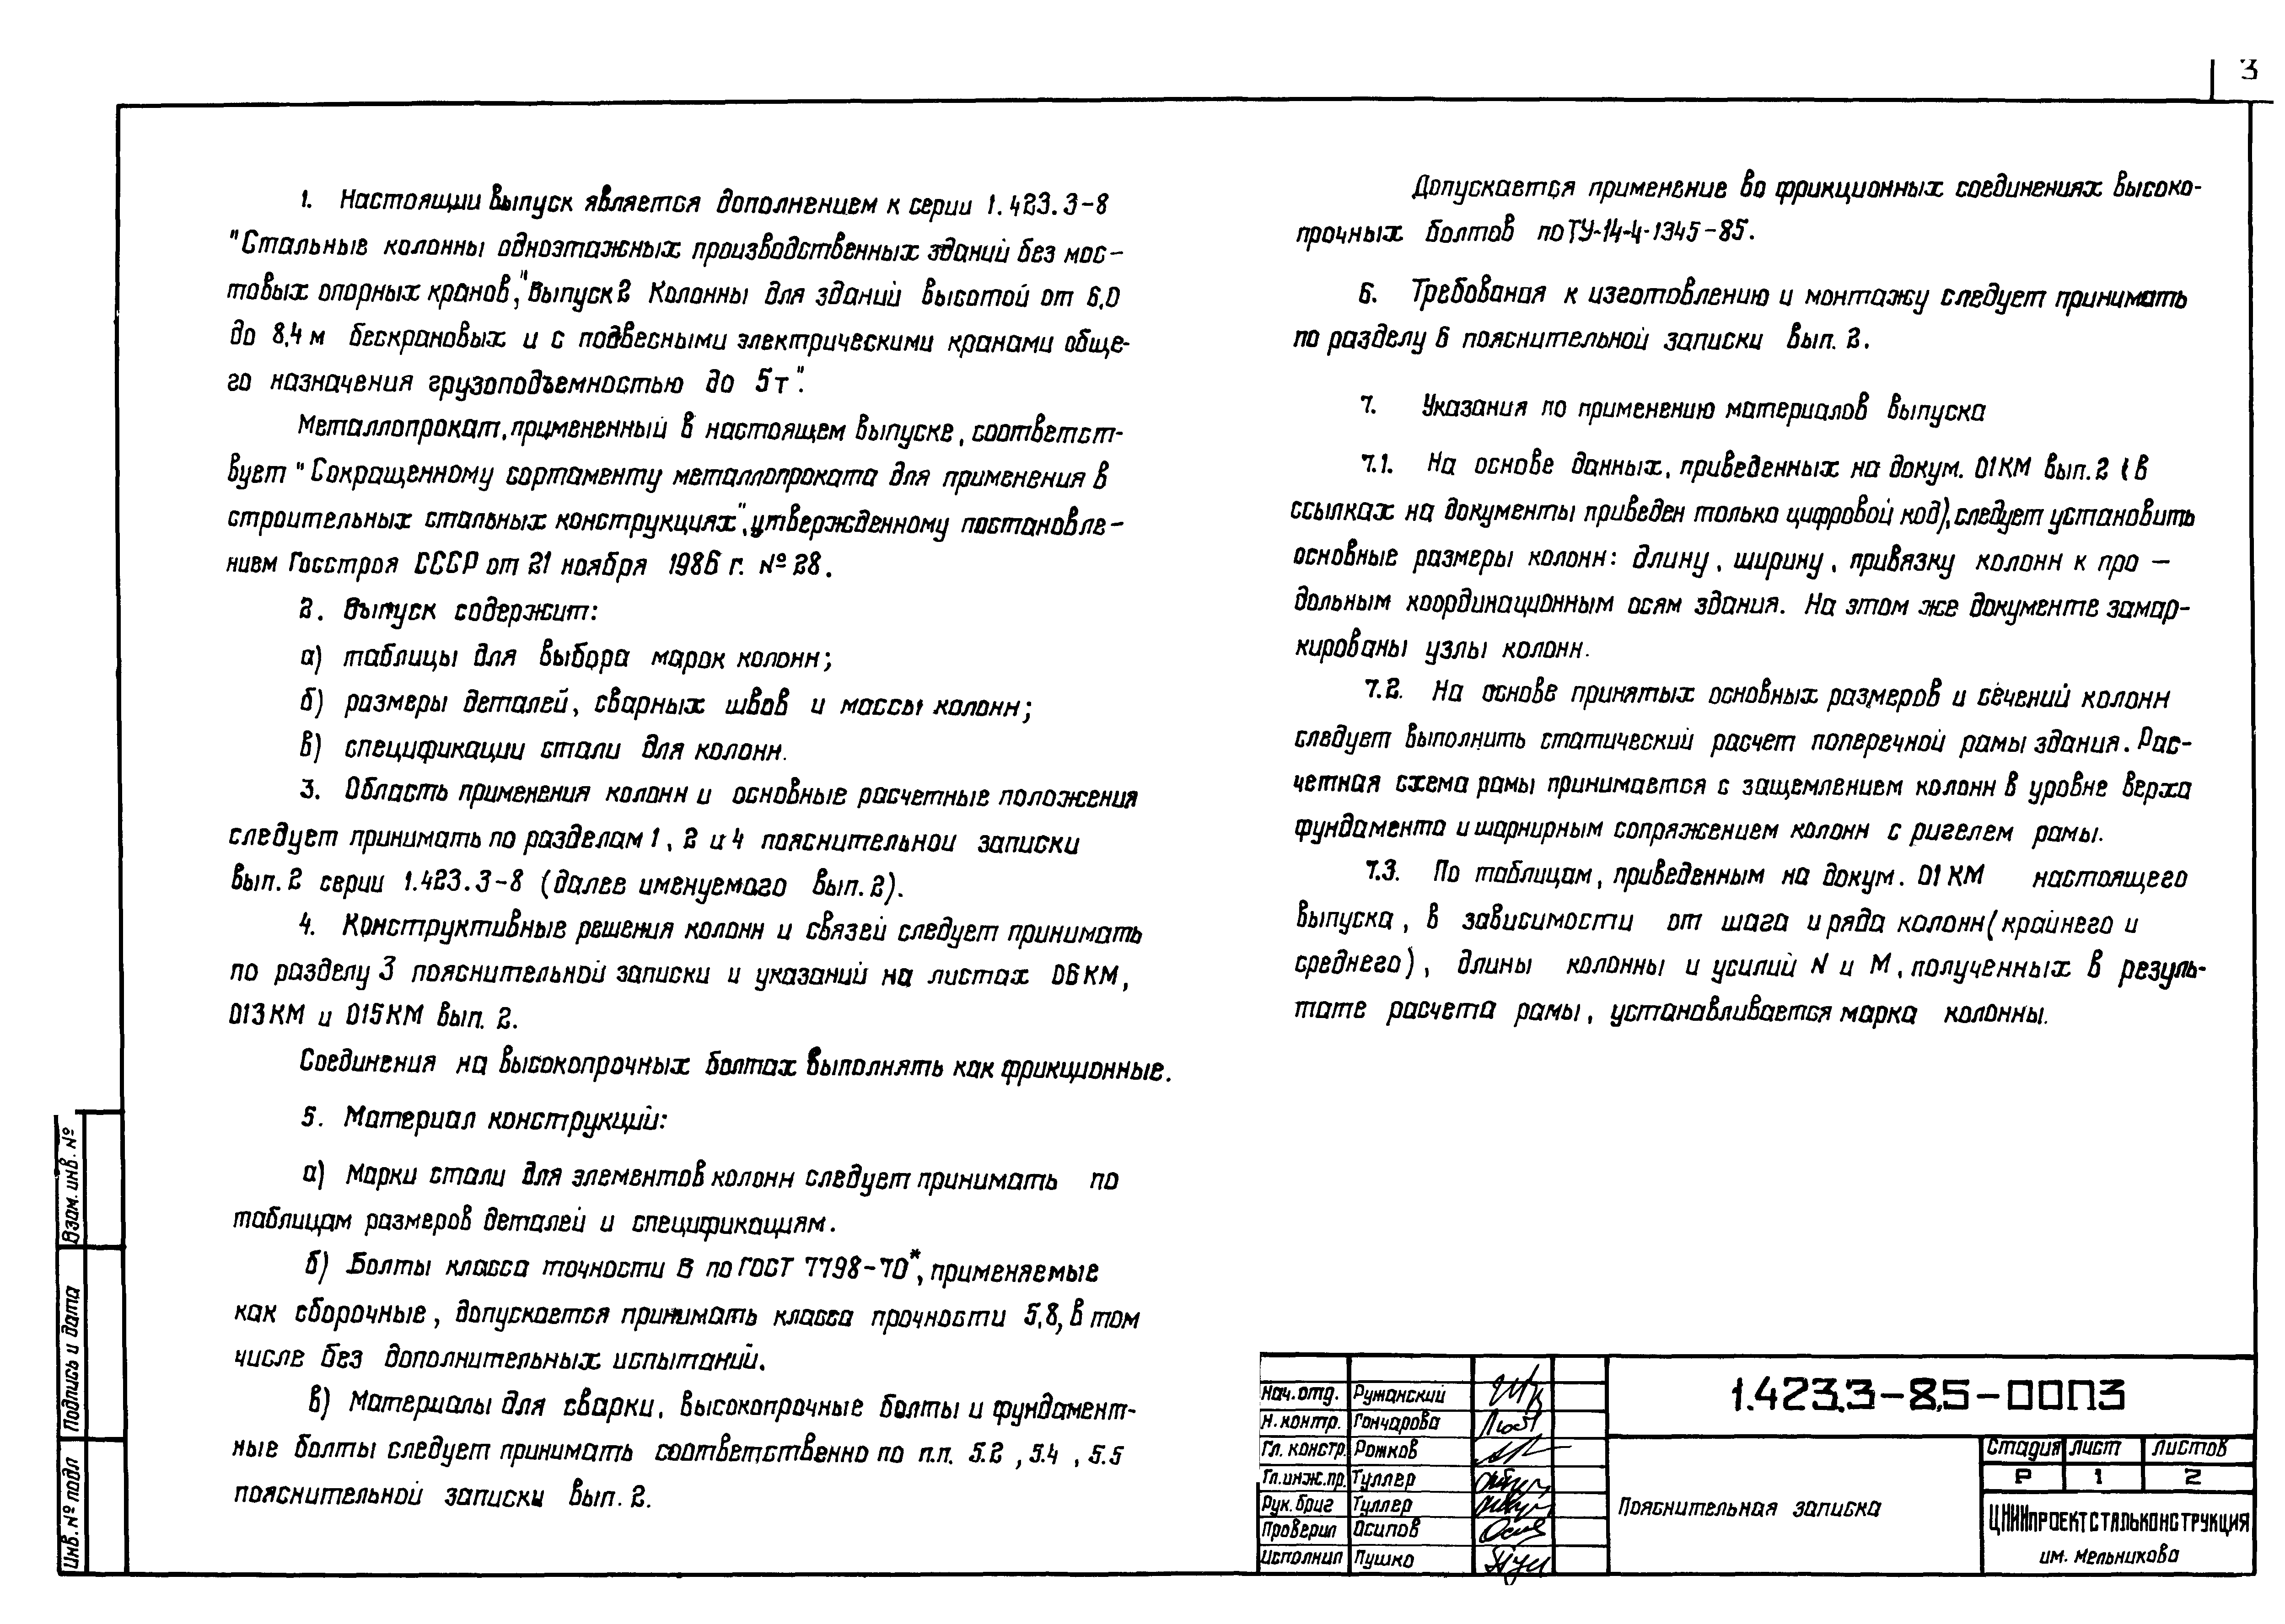 3
1. Настоящий выпуск является дополнением к серии 1.423.3-8
"Стальные колонны одноэтажных производственных зданий без мос-
товых опорных кранов," Выпуск 2 Колонны для зданий высотой от 6,0
до 8,4 м бескрановых и с подвесными электрическими кранами обще-
го назначения грузоподъемностью до 5т".
Металлопрокат, примененный в настоящем выпуске, соответст-
вует "Сокращенному сортаменту металлопроката для применения в
строительных стальных конструкциях", утвержденному постановле-
нием Госстроя СССР от 21 ноября 1986 г. № 28.
2. Выпуск содержит:
а) таблицы для выбора марок колонн;
б) размеры деталей, сварных швов и массы колонн;
в) спецификации стали для колонн.
3. Область применения колонн и основные расчетные положения
следует принимать по разделам 1, 2 и 4 пояснительной записки
вып. 2 серии 1.423.3-8 (далее именуемого вып. 2).
4. Конструктивные решения колонн и связей следует принимать
по разделу 3 пояснительной записки и указаний на листах 06КМ,
013КМ и 015КМ вып. 2.
Соединения на высокопрочных болтах выполнять как фрикционные.
5. Материал конструкций:
а) Марки стали для элементов колонн следует принимать по
таблицам размеров деталей и спецификациям.
б) Болты класса точности В по ГОСТ 7798-70*, применяемые
как сборочные, допускается принимать класса прочности 5.8, в том
числе без дополнительных испытаний.
в) Материалы для сварки, высокопрочные болты и фундамент-
ные болты следует принимать соответственно по п.п. 5.2, 5.4, 5.5
пояснительной записки вып. 2.
Допускается применение во фрикционных соединениях высоко-
прочных болтов по ТУ-14-4-1345-85.
6. Требования к изготовлению и монтажу следует принимать
по разделу 6 пояснительной записки вып. 2.
7. Указания по применению материалов выпуска
7.1. На основе данных, приведенных на докум. 01КМ вып. 2 (в
ссылках на документы приведен только цифровой код), следует установить
основные размеры колонн: длину, ширину, привязку колонн к про-
дольным координационным осям здания. На этом же документе замар-
кированы узлы колонн.
7.2. На основе принятых основных размеров и сечений колонн
следует выполнить статический расчет поперечной рамы здания. Рас-
четная схема рамы принимается с защемлением колонн в уровне верха
фундамента и шарнирным сопряжением колонн с ригелем рамы.
7.3. По таблицам, приведенным на докум. 01КМ настоящего
выпуска, в зависимости от шага и ряда колонн (крайнего и
среднего), длины колонны и усилий N и М, полученных в резуль-
тате расчета рамы, устанавливается марка колонны.
Взам. инв. №
Подпись и дата
Инв. № подл
Нач. отд. Ружанский
Н. контр. Гончарова
Гл. констр. Рожков
Гл. инж. пр. Туллер
Рук. бриг Туллер
Проверил Осипов
Исполнил Пушко
1.423.3-8.5-00ПЗ
Пояснительная записка
Стадия Лист Листов
Р 1 2
ЦНИИПРОЕКТСТАЛЬКОНСТРУКЦИЯ
им. Мельникова